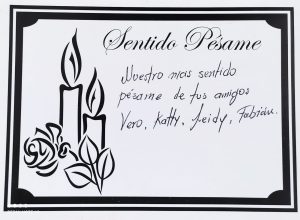 Sentido Pésame
Nuestro mas sentido
pésame de tus amigos
Vero, Katty, Leidy, Fabián.